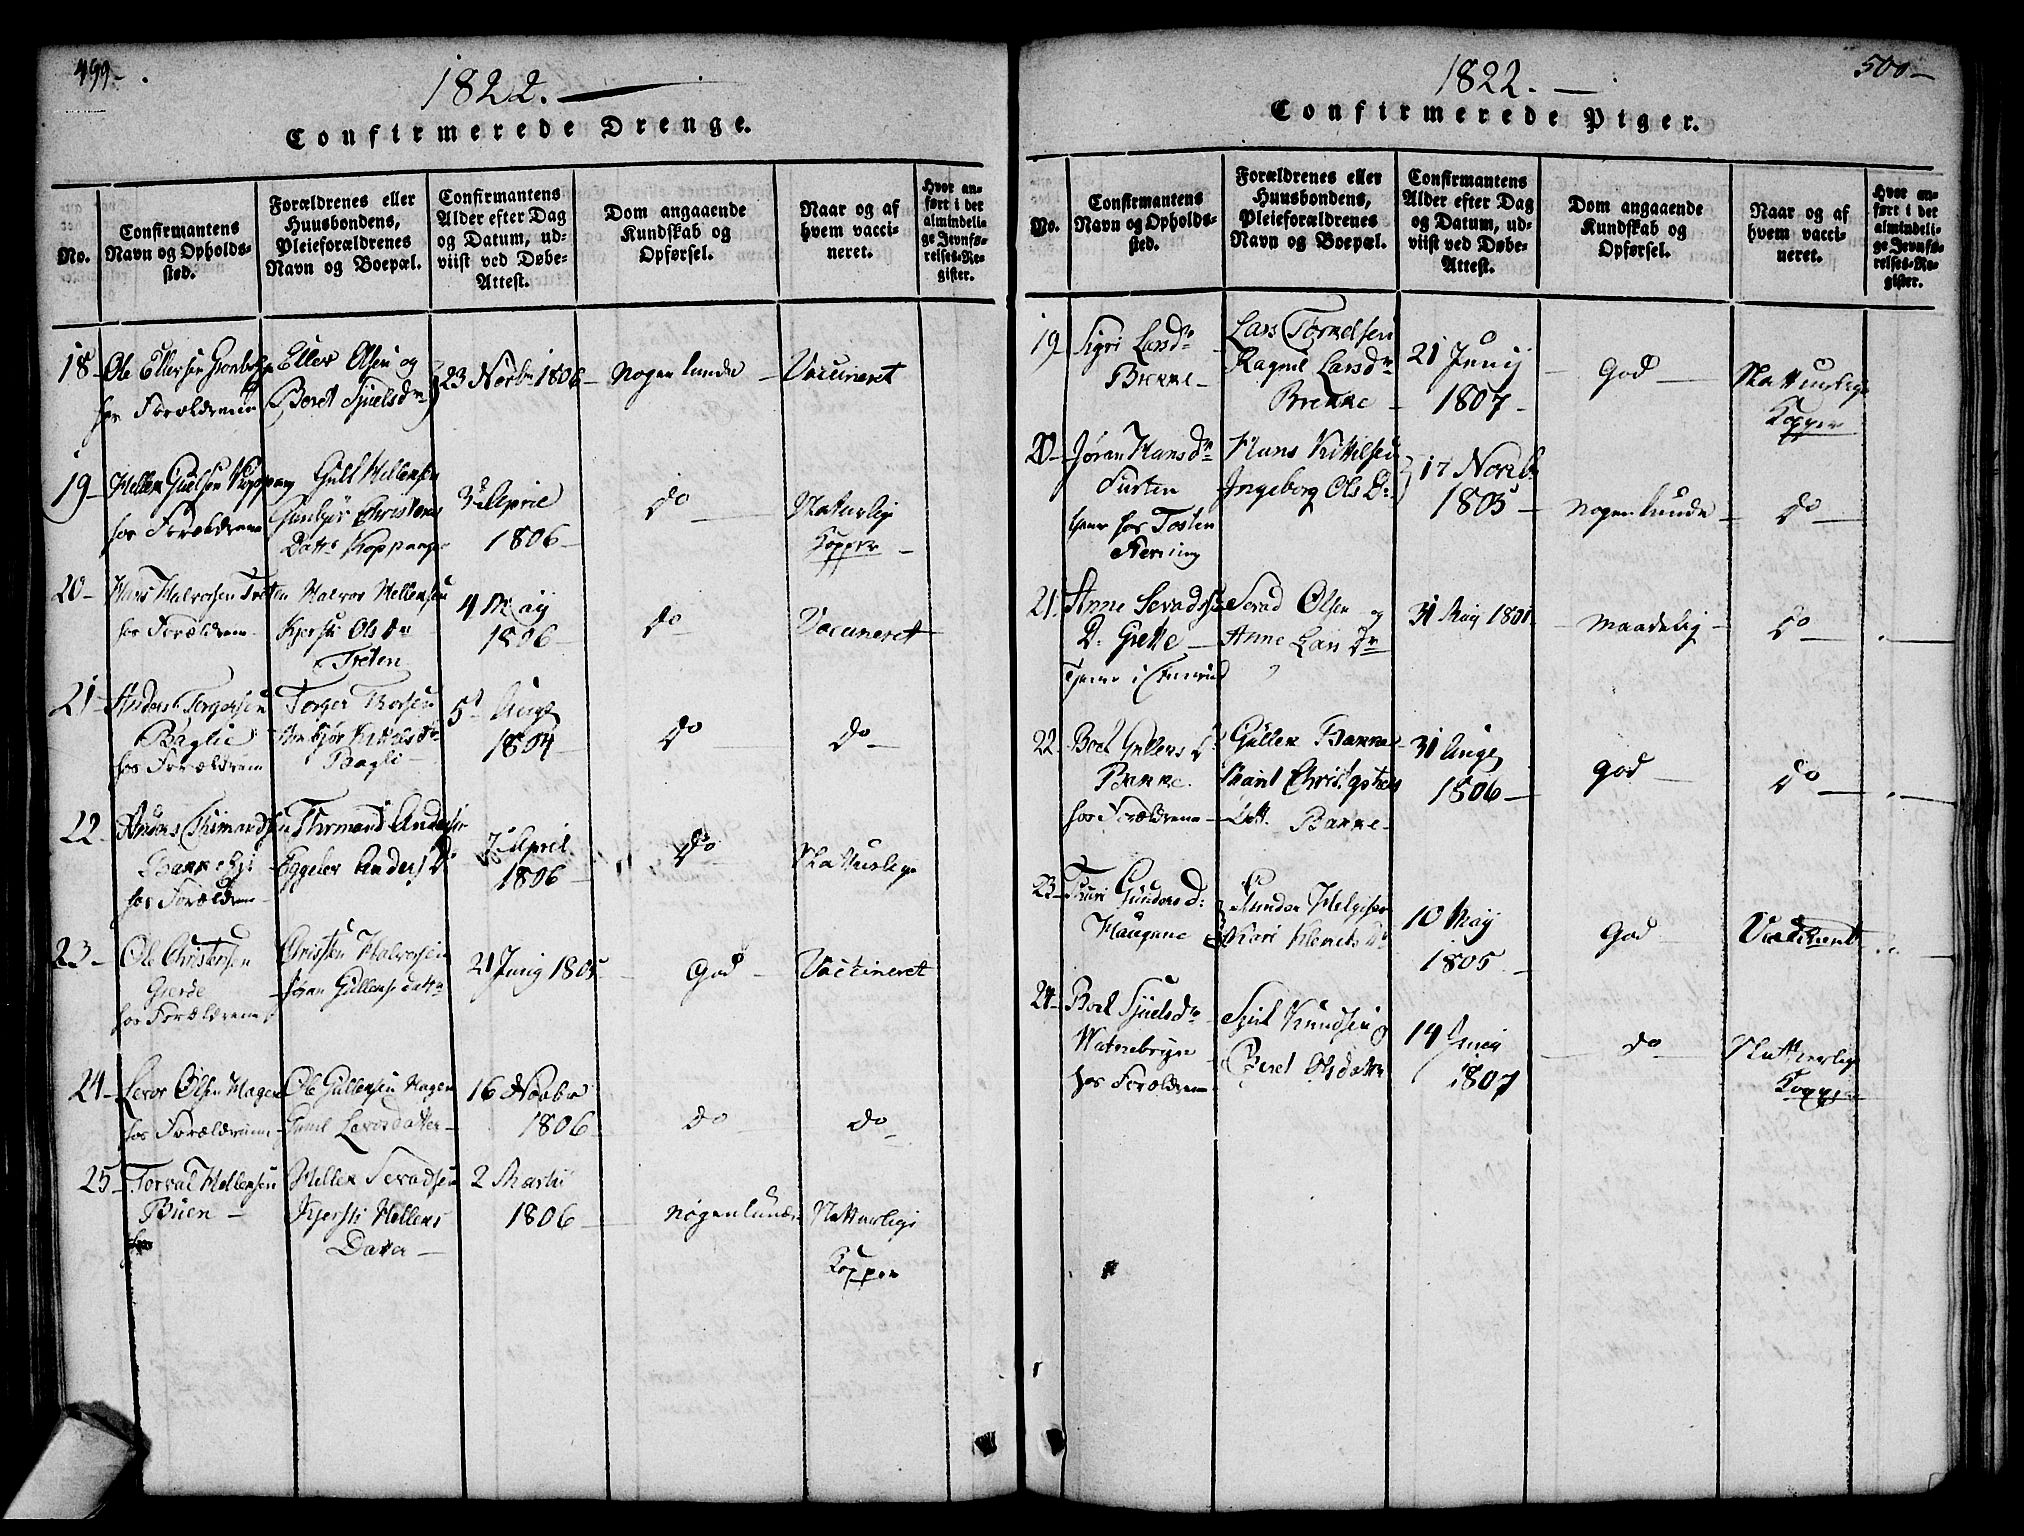 499-
1822.
Confirmerede Drenge.
No.
Confirmantens
Navn og Opholds-
sted.
Forældrenes eller
Huusbondens,
Pleieforældrenes
Navn og Boepæl.
Confirmantens
Alder efter Dag
og Datum, ud-
viist ved Døbe-
Attest.
Dom angaaende
Kundskab og
Opførsel.
Naar og af
hvem vacci-
neret.
Hvor an-
ført i det
almindeli-
ge Jevnfø-
relses-Re-
gister.
18-
Ole Ellersen
hos Forældrene
Eller Olsen og
Beret Sjuelsdr
23 Novbr 1806
Nogenlunde
Vaccineret
19-
Hellek Gulsen Koppang
hos Forældrene
Guls Hellensen
Christens
Dattr Koppange
3d April
1806
do
Naturlig
Kopper
20-
Hans Halvorsen Treten
hos Forældrene
Halvor Hellensen
Kjersti Olsdr
Treten
4 May
1806
do
Vaccineret
21-
Anders Torgersen
Baglie
hos Forældrene
Torger Thorsen
Bagli
5t Augt
1804
do
do
22
Anders Thimandsen
hos Forældrene
Thrmand Andersen
Anders D
April
1806
do
Natturlige
23-
Ole Christensen
Gierde
hos Forældrene
Christen Halvorsen
Jøran Gullensdattr
21 Junij 1805
God
Vaccineret
24-
Levor Olsen Hagen
hos Forældrenne
Ole Gullensen Hagen
Gunil Levorsdatter
16 Novbr
1806
do
do
25-
Torval Hellensen
Buen
Hellek Sevadsen
Kjersti Hellens
Datter
2 Martii
1806
Nogenlunde
Natturlige
Kopper
1822.
500-
Confirmerede Piger.
No.
Confirmantens
Navn og Opholds-
sted.
Forældrenes eller
Huusbondens,
Pleieforældrenes
Navn og Boepæl.
Confirmantens
Alder efter Dag
og Datum, ud-
viist ved Døbe-
Attest.
Dom angaaende
Kundskab og
Opførsel.
Naar og af
hvem vacci-
neret.
Hvor an-
ført i det
almindeli-
ge Jevnfø-
relses-Re-
gister.
19-
Sigri Larsdr
Brekke
Lars Torkelsen
Ragnil Larsdr
Brekke
21 Junij
1807
God
Natturlige
Kopper
20-
Jøran Hansdr
Tuften
hos Tosten
Nerving
Hans Kittilsen
Ingeborg Ols Dr
17 Novb
1805
Nogenlunde
do
21.
Anne Sevads
D: Grette
Tjener i
Sevad Olsen og
Anne Lars Dr
31 May 1801
Maadelig
do
22-
Boel Gullens D
Brekke
hos Forældrene
Gullek
Marit Christophers
Dtt.
31 Augt
1806
God
do
23-
Thuri Gunders d:
Haugane
Gunder Helgesen
Kari D
10 May
1805
God
Vaccineret
24-
Boel Sjuelsdr
Watnebryn
hos Forældrene
Sjul Knudsen og
Beret Olsdattr
14 Junij
1807
do
Natturlige
Kopper